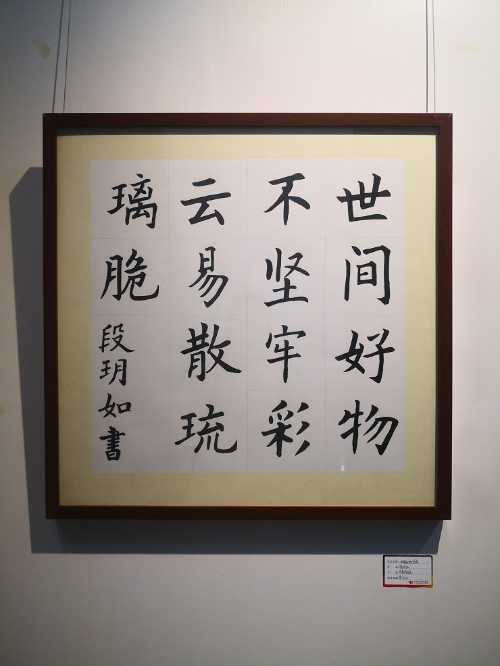 世间好物
不坚牢彩
云易散琉
璃脆
段玥如书